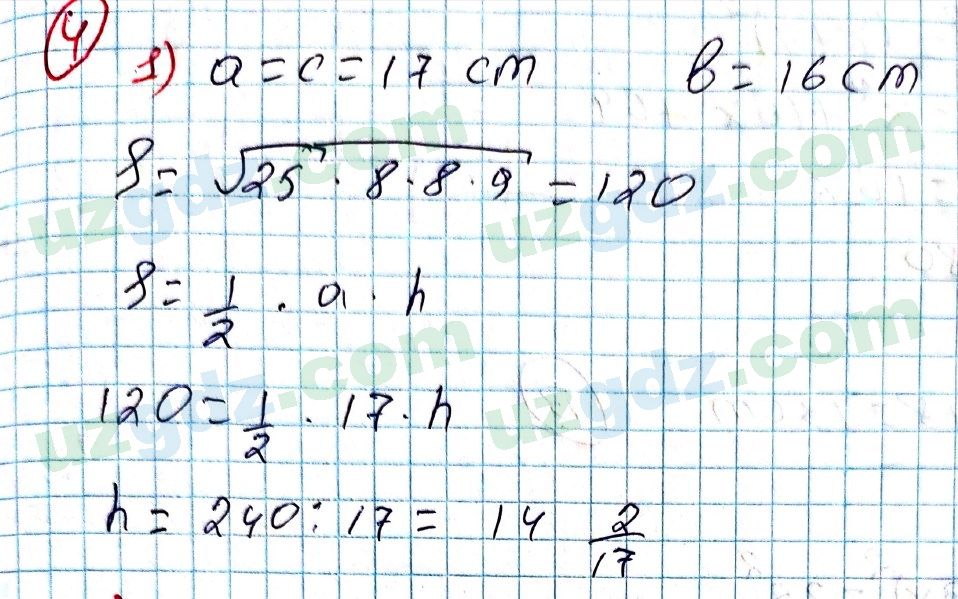 4 1) a = c = 17 cm b = 16 cm
S = √25 · 8 · 8 · 9 = 120
S = 1/2 · a · h
120 = 1/2 · 17 · h
h = 240 : 17 = 14 2/17
uzgdz.com
uzgdz.com
uzgdz.com
uzgdz.com